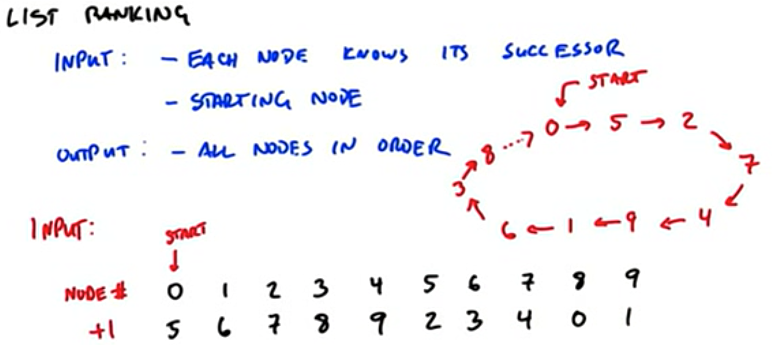 LIST RANKING
INPUT: - EACH NODE KNOWS ITS SUCCESSOR
- STARTING NODE
START
OUTPUT: - ALL NODES IN ORDER
8 0 → 5 → 2
3 7
6 ← 1 ← 9 ← 4
INPUT: START
NODE # 0 1 2 3 4 5 6 7 8 9
+1 5 6 7 8 9 2 3 4 0 1